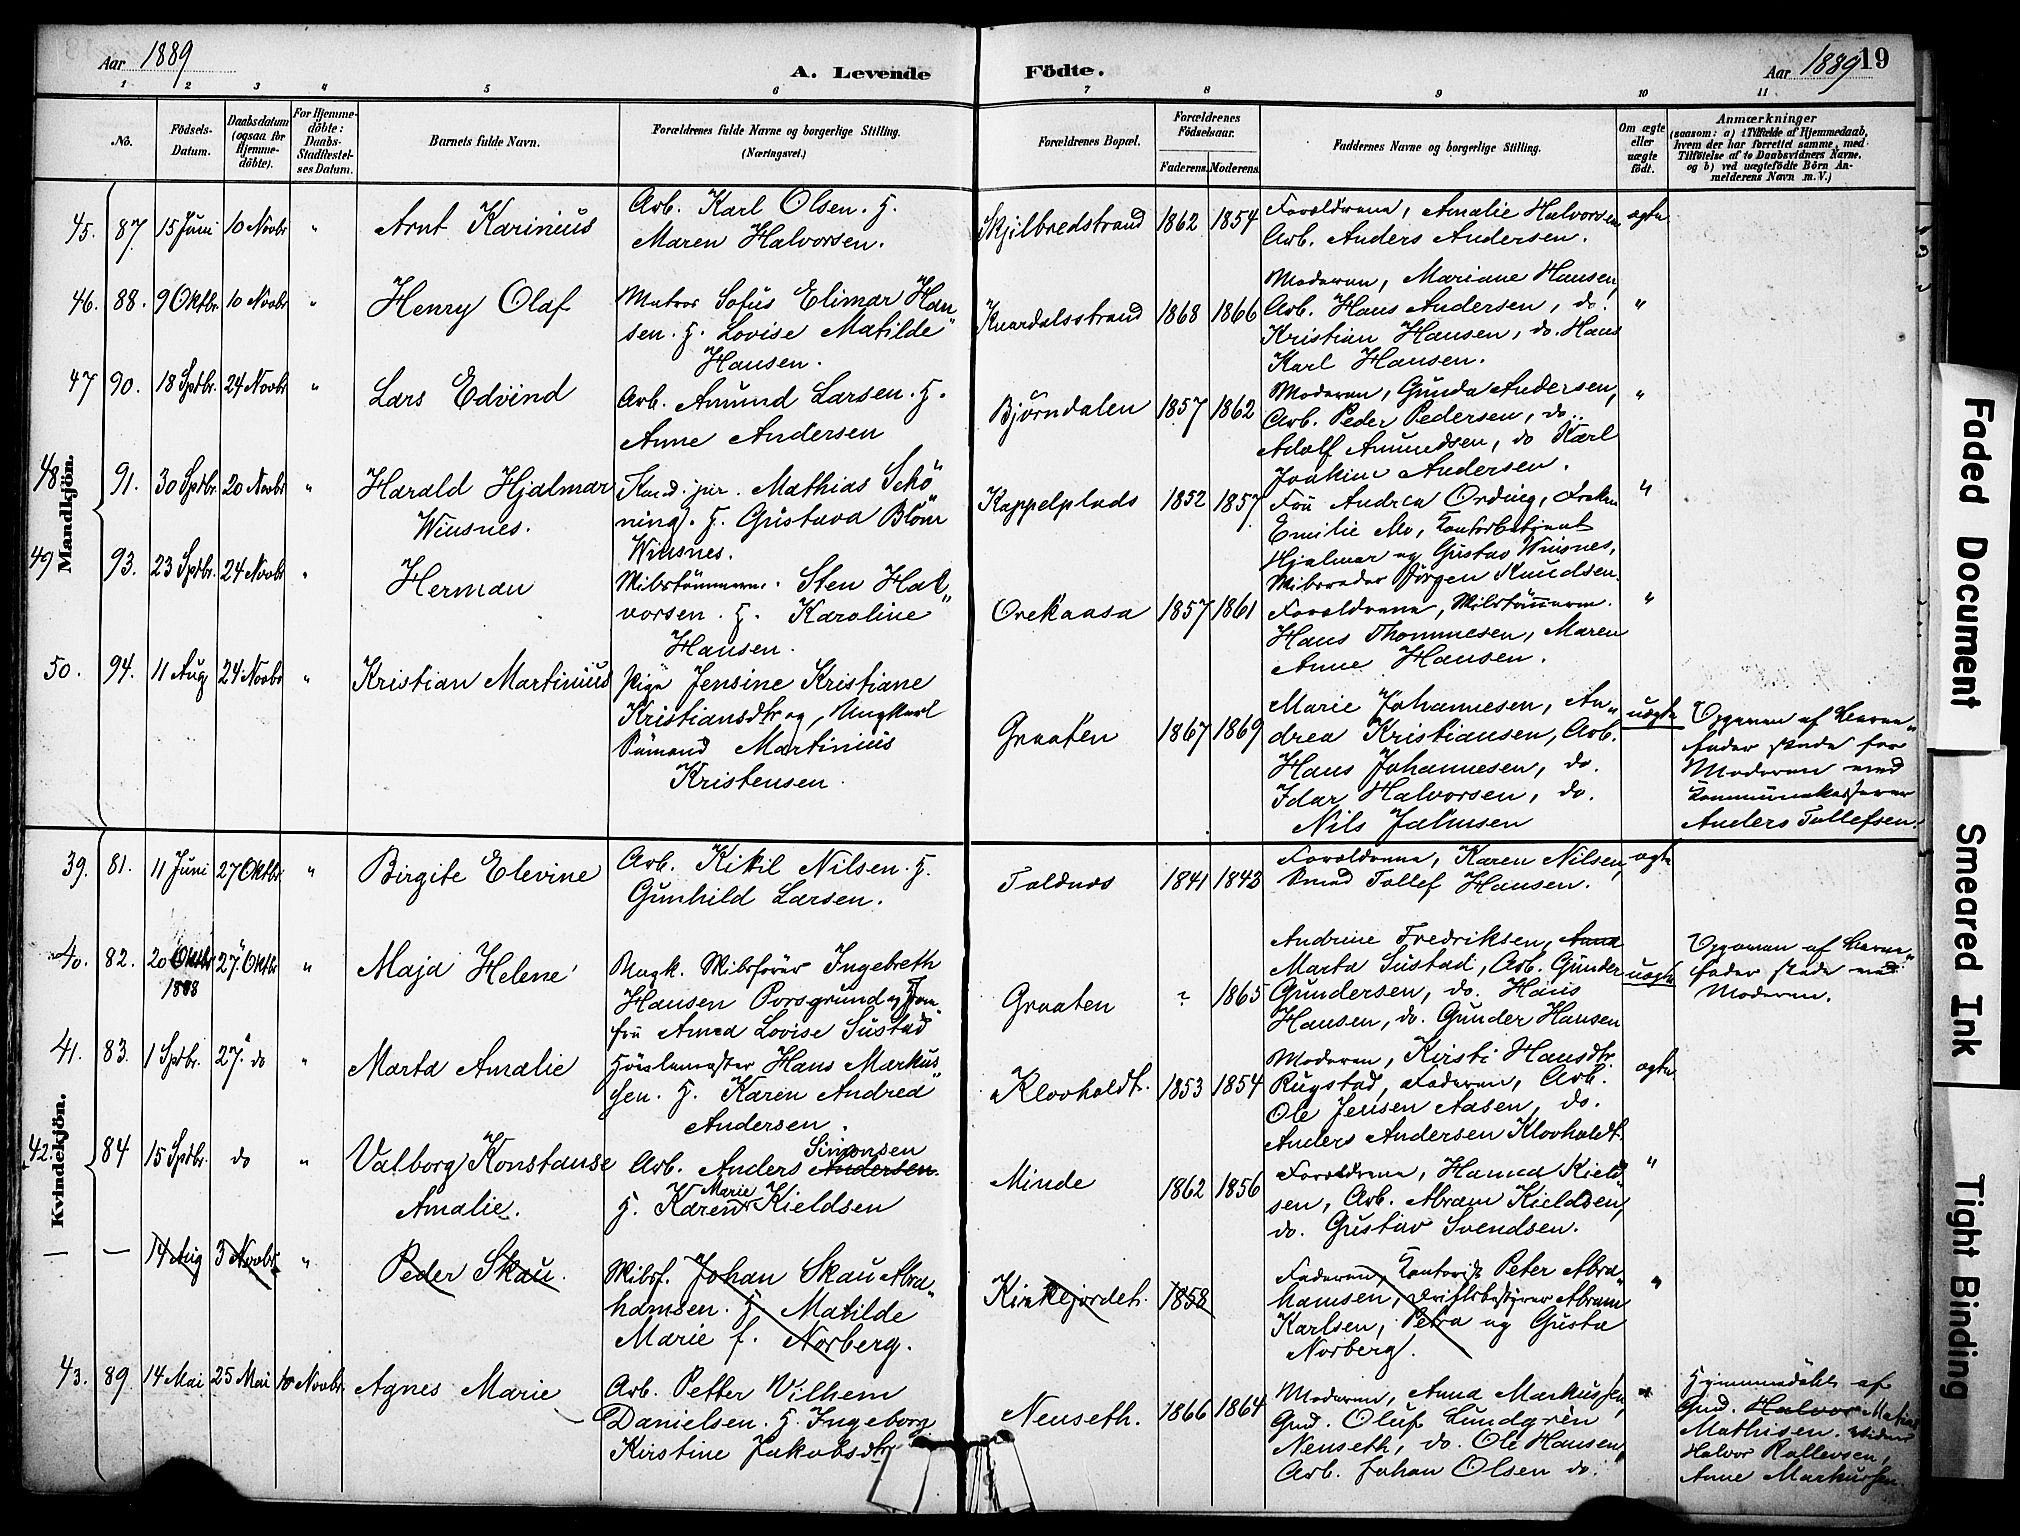 Aar 1889
A. Levende Födte.
Aar 1889 19
1 2 3 4 5 6 7 8 9 10 11
No.
Födsels-
Datum.
Daabsdatum
(ogsaa for
Hjemme-
döbte).
For Hjemme-
döbte:
Daabs-
Stadfæstel-
ses Datum.
Barnets fulde Navn.
Forældrenes fulde Navne og borgerlige Stilling.
(Næringsvei.)
Forældrenes Bopæl.
Forældrenes
Födselsaar.
Faderens. Moderens.
Faddernes Navne og borgerlige Stilling.
Om ægte
eller
uægte
födt.
Anmærkninger
(saasom: a) i Tilfælde af Hjemmedaab,
hvem der har forrettet samme, med
Tilföielse af to Daabsvidners Navne,
og b) ved uægtefödte Börn An-
melderens Navn m.V.)
Mandkjön.
45. 87. 15 Juni 10 Novbr " Arnt Karinius
Arb. Karl Olsen. H.
Maren Halvorsen.
Skjilbredstrand 1862 1854
Forældrene, Amalie Halvorsen
Arb. Anders Andersen.
ægte
46. 88. 9 Oktbr. 10 Novbr " Henry Olaf
Matros Sofus Elimar Han
sen. H. Lovise Matilde
Hansen.
Knardalsstrand 1868 1866
Moderen, Mariane Hansen,
Arb. Hans Andersen, do.
Kristian Hansen, do. Hans
Karl Hansen.
"
47 90. 18 Sptbr. 24 Novbr " Lars Edvind
Arb. Amund Larsen. H.
Anne Andersen
Björndalen 1857 1862
Moderen, Gunda Andersen,
Arb. Peder Pedersen, do.
Adolf Amundsen, do Karl
Joakim Andersen.
"
48 91. 30 Sptbr. 20 Novbr " Harald Hjalmar
Winsnes.
Kand. jur. Mathias Schö
ning. H. Gustava Blom
Winsnes.
Kappelplads 1852 1857
Fru Andrea Ording, Frøken
Emilie Mo, Kontorbetjent
Hjalmar og Gustav Winsnes,
Mibsreder Jörgen Knudsen.
"
49 93. 23 Sptbr. 24 Novbr " Herman
Skibstömmerm. Sten Hal
vorsen. H. Karoline
Hansen.
Orekaasa 1857 1861
Forældrene, Skibstömmerm.
Hans Thommesen, Maren
Anne Hansen.
"
50. 94. 11 Aug 24 Novbr " Kristian Martinius
Pige Jensine Kristiane
Kristiansdtr og, Ungkarl
Sömand Martinius
Kristensen.
Graaten 1867 1869
Marie Johannesen, An
drea Kristiansen, Arb.
Hans Johannesen, do.
Idar Halvorsen, do.
Nils Jahnsen
uægte
Opgaven af Barne
fader skede for
Moderen ved
Kommunekasserer
Anders Tollefsen.
Kvindekjön.
39. 81. 11 Juni 27 Oktbr. " Birgite Elevine
Arb. Kikil Nilsen. H.
Gunhild Larsen.
Foldnes 1841 1843
Forældrene, Karen Nilsen,
Sömd Tollef Hansen.
ægte
40. 82. 20 Oktbr 27. Oktbr "
1888
Maja Helene
Ungk. Skibsförer Ingebreth
Hansen Porsgrund og Jom
fru Anna Lovise Sustad
Graaten ? 1865
Andrine Fredriksen,
Marta Sustad, Arb. Gunder
Gundersen, do. Hans
Hansen, do. Gunder Hansen
uægte
Opgaven af Barne
fader skede ved
Moderen.
41. 83. 1 Sptbr. 27. do " Marta Amalie
Hövlemester Hans Markus
sen. H. Karen Andrea
Andersen.
Klovholdt. 1853 1854
Moderen, Kirsti Hansdtr.
Rugstad, Faderen, Arb.
Ole Jensen Aasen, do.
Anders Andersen Klovholdt.
ægte
42. 84 15 Sptbr. do " Valborg Konstanse
Amalie.
Simonsen
Arb. Anders Andersen.
Marie
H. Karen Kieldsen
Minde 1862 1856
Forældrene, Hanna Kield
sen, Arb. Abram Kieldsen,
do. Gustav Svendsen.
"
— — 14 Aug 3 Novbr. " Peder Skau.
Skibsf. Johan Skau Abra
hamsen. H. Matilde
Marie f. Norberg.
Kirkefjordet. 1858
Faderen, Kontorist Peter Abra
hamsen, Driftsbestyrer Abram
Karlsen, Petra og Gusta
Norberg.
"
43. 89. 14 Mai 25 Mai 10 Novbr. Agnes Marie
Arb. Petter Vilhem
Danielsen. H. Ingeborg
Kirstine Jakobsdtr
Nenseth. 1866 1864
Moderen, Anna Markussen,
Grd. Oluf Lundgren
Nenseth, do. Ole Hansen,
Arb. Johan Olsen do.
"
Hjemmedöbt af
Grd. Halvor Matias
Mathisen. Vidner
Halvor Rollevsen,
Anne Markussen.
Faded Document
Smeared Ink
Tight Binding